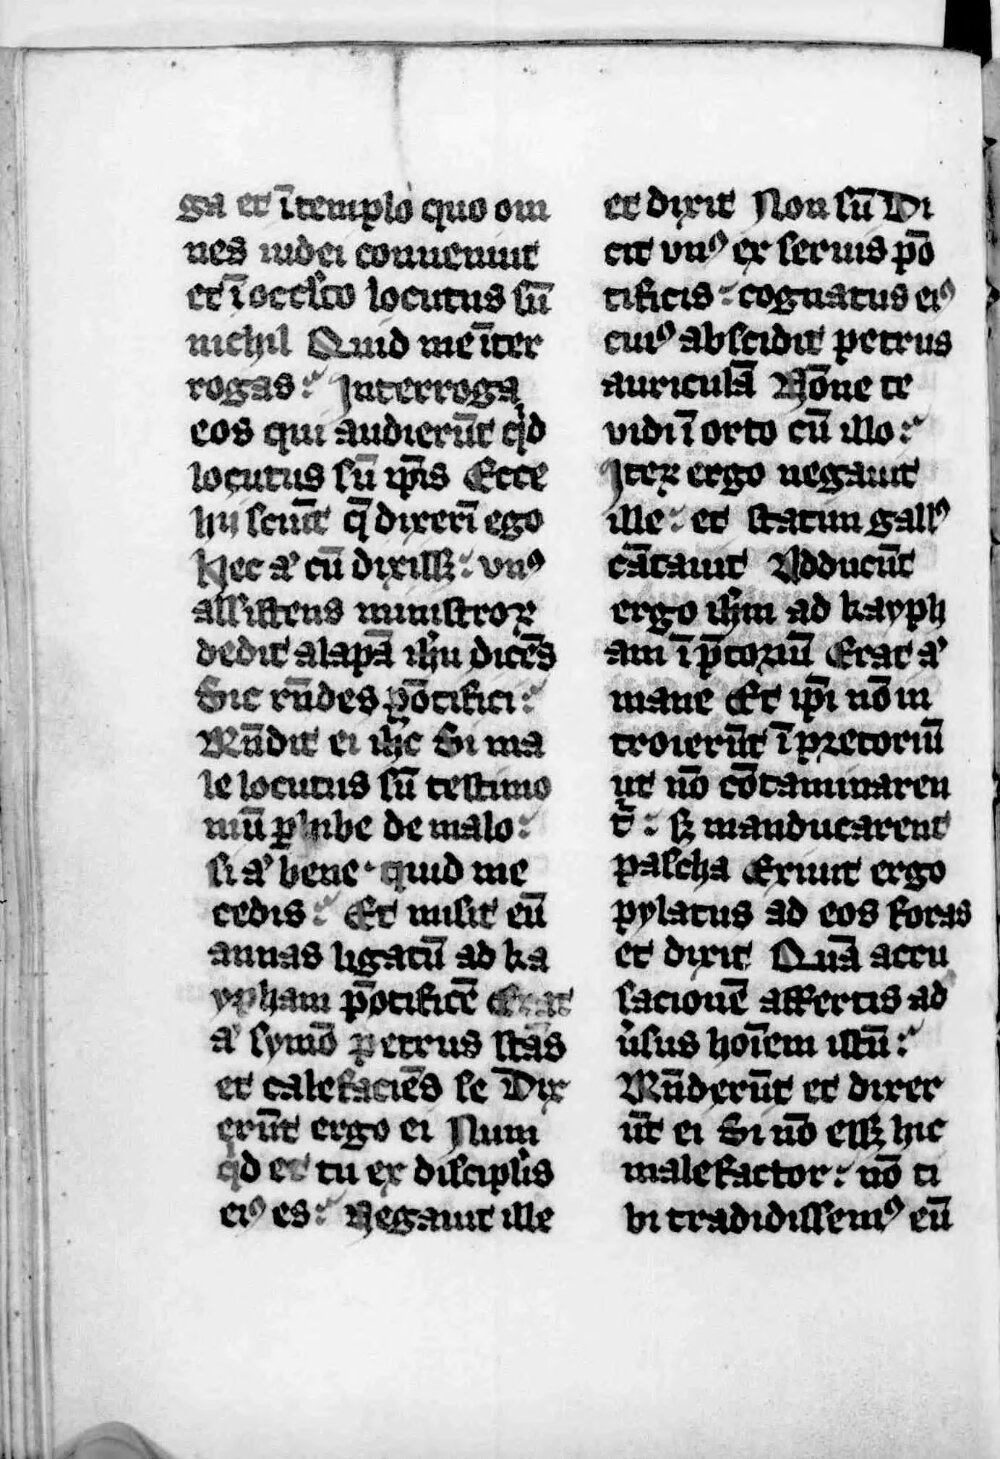 ga et ī templo quo om
nes iudei conueniūt
et ī occl̛to locutus sū
nichil Quid me īter
rogas: Interroga
eos qui audierūt qͥd
locutus sū ip̄is Ecce
hij sciūt q̄ dixerī ego
Hec aͧ cū dixissꝫ: vnꝰ
assistens ministroꝝ
dedit alapā ih̄u dicēs
Sic rn̄des pōtifici:
Rn̄dit ei ih̄c Si ma
le locutus sū testimo
niū ꝑhibe de malo:
si aͧ bene· quid me
cedis: Et misit eū
annas ligatū ad ka
ypham pōtificē Erat
aͧ symō petrus stās
et calefaciēs se Dix
erūt ergo ei Num
qͥd et tu ex discipl̛is
eiꝰ es: Negauit ille
et dixit Non sū Di
cit vnꝰ ex seruis pō
tificis: cognatus eiꝰ
cuiꝰ abscidit petrus
auriculā Nōne te
vidi ī orto cū illo:
Iteꝝ ergo negauit
ille: et statim gallꝰ
cātauit Adducūt
ergo ih̄m ad kayph
am ī p̄toriū Erat aͧ
mane Et ip̄i nō in
troierūt ī pretoriū
ut nō cōtaminaren
t̄: sꝫ manducarent
pascha Exiuit ergo
pylatus ad eos foras
et dixit Quā accu
sacionē affertis ad
ưsus hoīem istū:
Rn̄derūt et dixer
ūt ei Si nō essꝫ hic
malefactor: nō ti
bi tradidissemꝰ eū